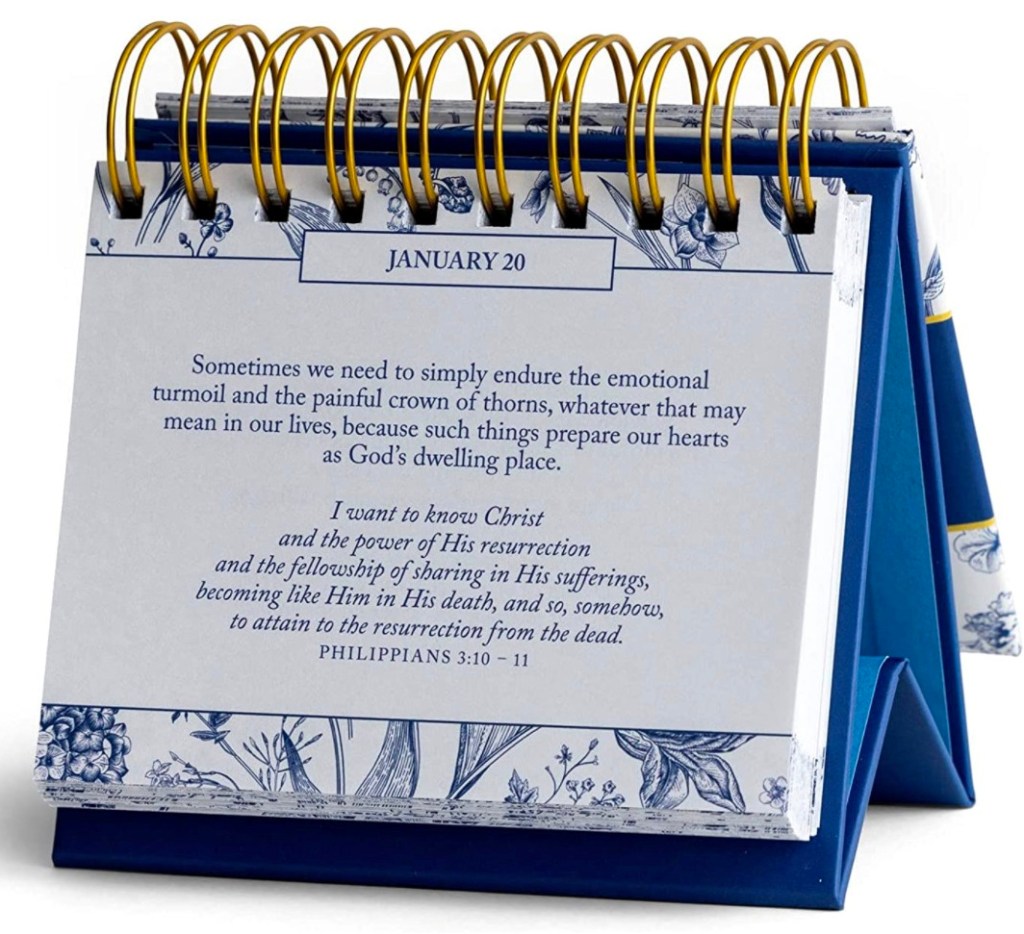 JANUARY 20
Sometimes we need to simply endure the emotional
turmoil and the painful crown of thorns, whatever that may
mean in our lives, because such things prepare our hearts
as God's dwelling place.
I want to know Christ
and the power of His resurrection
and the fellowship of sharing in His sufferings,
becoming like Him in His death, and so, somehow,
to attain to the resurrection from the dead.
PHILIPPIANS 3:10 – 11